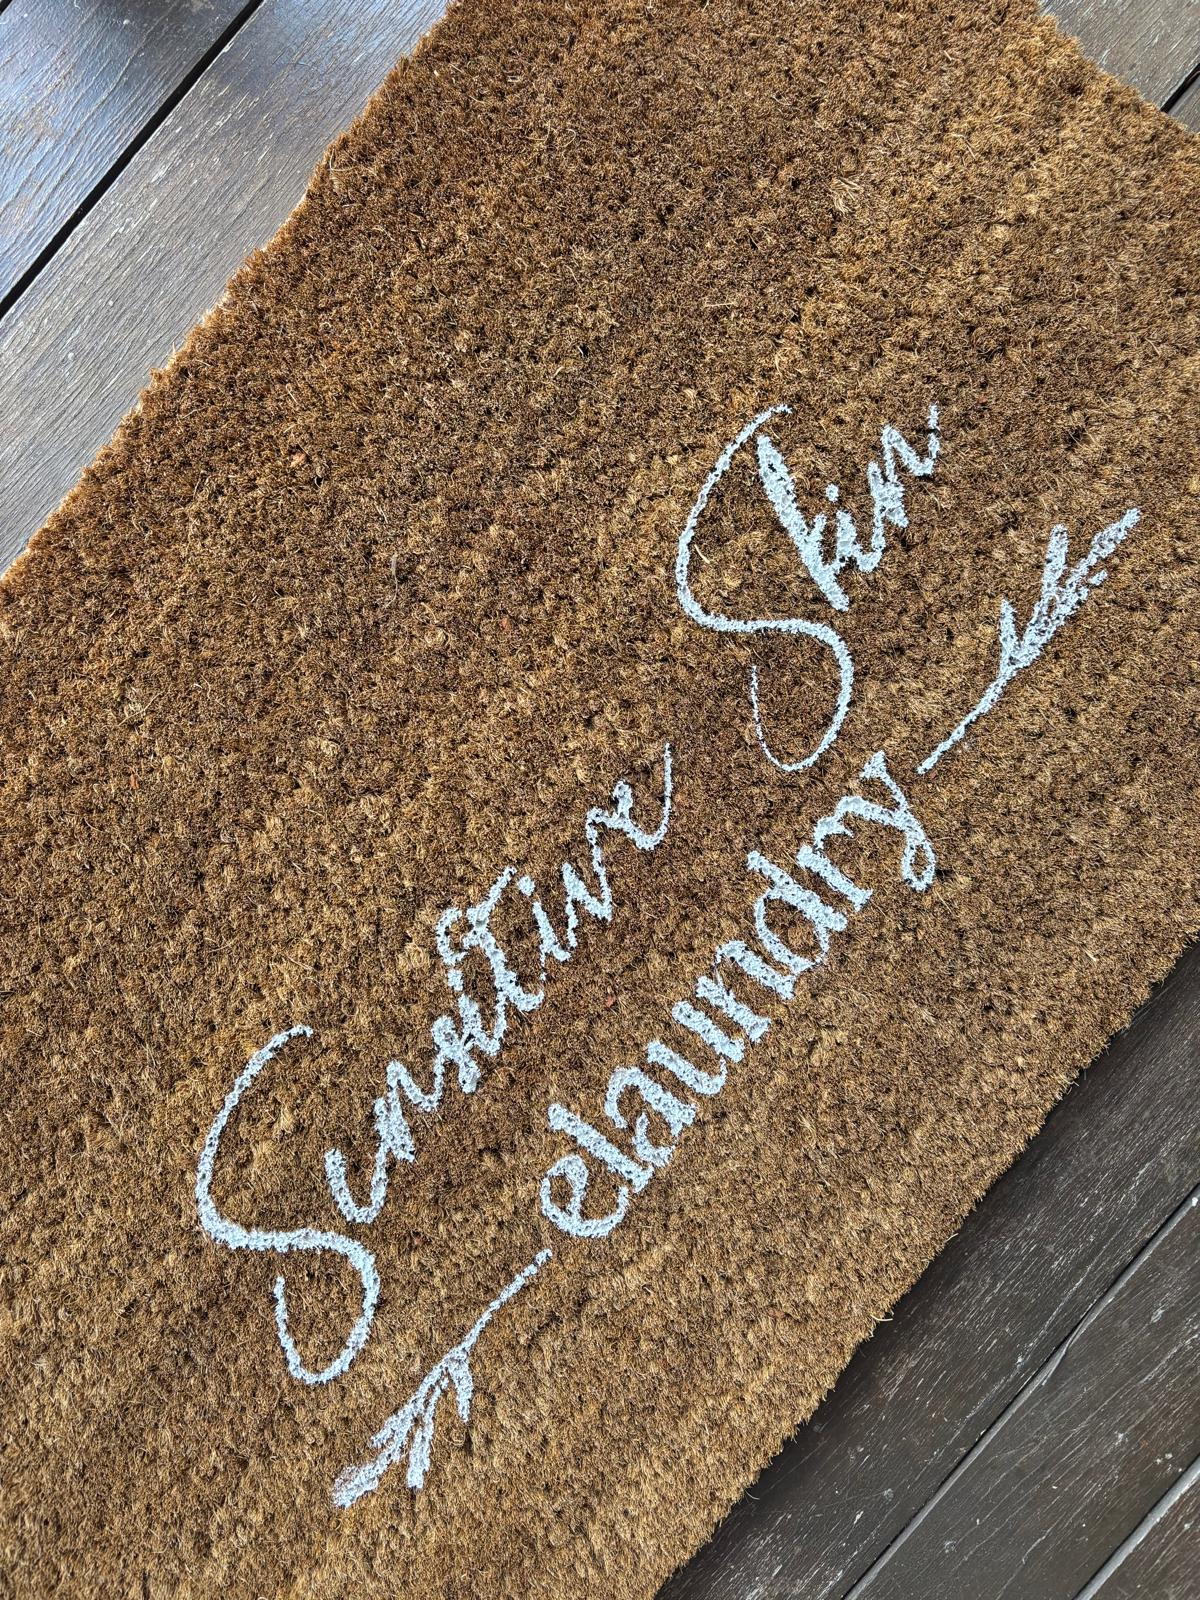 Sensitive Skin
elaundry